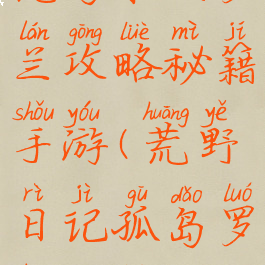 lán gōng lüè mì jí
兰攻略秘籍
shǒu yóu huāng yě
手游(荒野
rì jì gū dǎo luó
日记孤岛罗